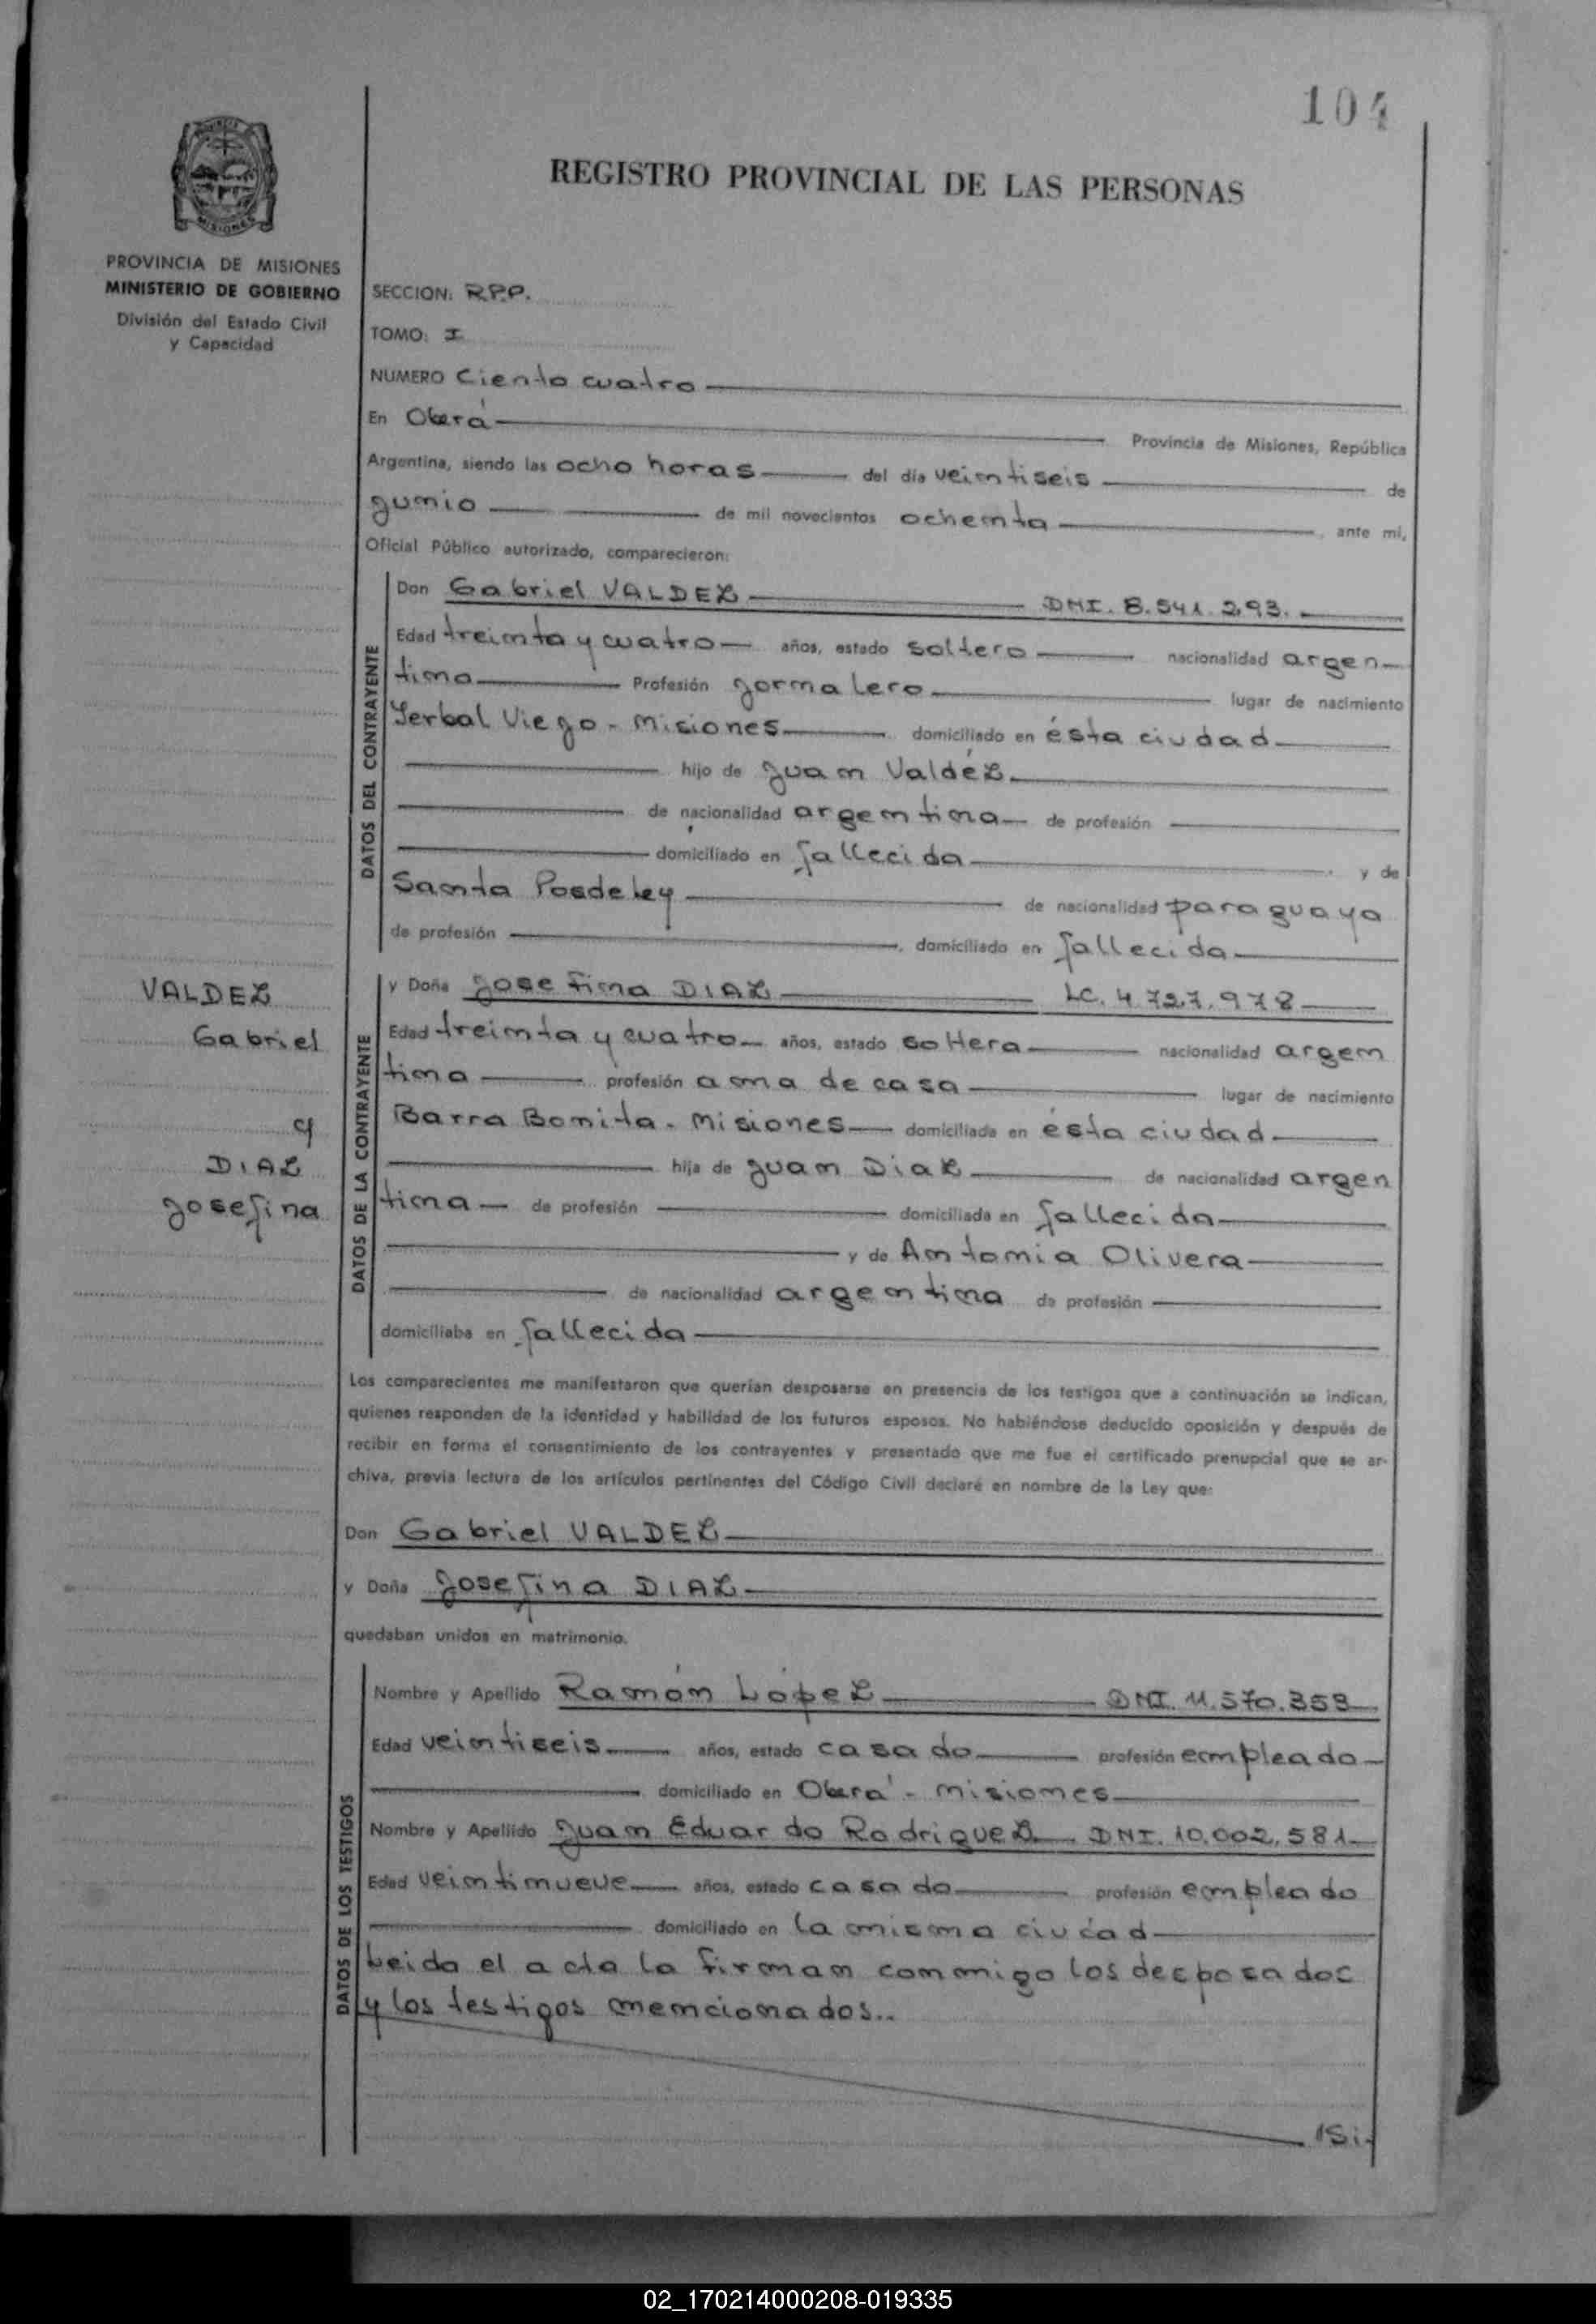 104
REGISTRO PROVINCIAL DE LAS PERSONAS
PROVINCIA DE MISIONES
MINISTERIO DE GOBIERNO
División del Estado Civil
y Capacidad
SECCION: R.P.P.
TOMO: I
NUMERO Ciento cuatro
En Oberá Provincia de Misiones, República
Argentina, siendo las ocho horas del día veintiseis de
Junio de mil novecientos ochenta, ante mi,
Oficial Público autorizado, comparecieron:
DATOS DEL CONTRAYENTE
Don Gabriel VALDEZ DNI. 8.541.293.
Edad treinta y cuatro años, estado soltero nacionalidad argen
tina Profesión Jornalero lugar de nacimiento
Yerbal Viejo - Misiones domiciliado en ésta ciudad
hijo de Juan Valdéz
de nacionalidad argentina de profesión
domiciliado en fallecida y de
Santa de nacionalidad paraguaya
de profesión, domiciliado en fallecida
VALDEZ
Gabriel
y
DIAZ
Josefina
DATOS DE LA CONTRAYENTE
y Doña Josefina DIAZ LC. 4.727.978
Edad treinta y cuatro años, estado soltera nacionalidad argen
tina profesión ama de casa lugar de nacimiento
Barra Bonita - Misiones domiciliada en ésta ciudad
hija de Juan Diaz de nacionalidad argen
tina de profesión domiciliada en fallecida
y de Antonia Olivera
de nacionalidad argentina de profesión
domiciliaba en fallecida
Los comparecientes me manifestaron que querían desposarse en presencia de los testigos que a continuación se indican,
quienes responden de la identidad y habilidad de los futuros esposos. No habiéndose deducido oposición y después de
recibir en forma el consentimiento de los contrayentes y presentado que me fue el certificado prenupcial que se ar-
chiva, previa lectura de los artículos pertinentes del Código Civil declaré en nombre de la Ley que:
Don Gabriel VALDEZ
y Doña Josefina DIAZ
quedaban unidos en matrimonio.
DATOS DE LOS TESTIGOS
Nombre y Apellido Ramón López DNI. 11.570.353
Edad veintiseis años, estado casado profesión empleado
domiciliado en Oberá - Misiones
Nombre y Apellido Juan Eduardo Rodriguez DNI. 10.002.581
Edad veintinueve años, estado casado profesión empleado
domiciliado en la misma ciudad
Leida el acta la firman conmigo los desposados
y los testigos mencionados..
02_170214000208-019335